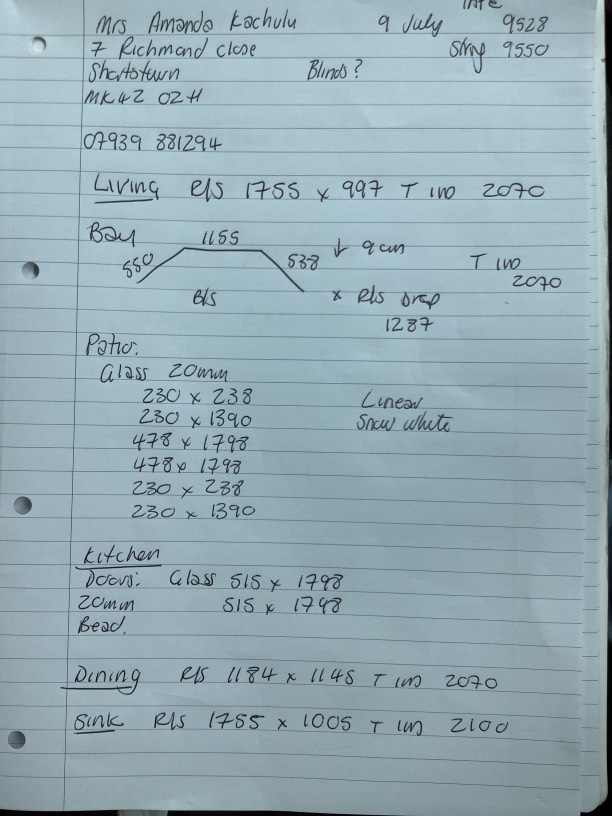 Mrs Amanda Kachulu 9 July 9528
7 Richmond close Stny 9550
Shortstown Blinds?
MK42 0ZH
07939 881294
Living R/S 1755 x 997 T IND 2070
Bay 1155
550 538 ↓ 9cm T IND
2070
B/S x R/S Drop
1287
Patio.
Glass 20mm
230 x 238 Linear
230 x 1390 Snow white
478 x 1798
478 x 1798
230 x 238
230 x 1390
Kitchen
Doors: Glass 515 x 1798
20mm 515 x 1798
Bead.
Dining R/S 1184 x 1145 T IND 2070
Sink R/S 1755 x 1005 T IND 2100